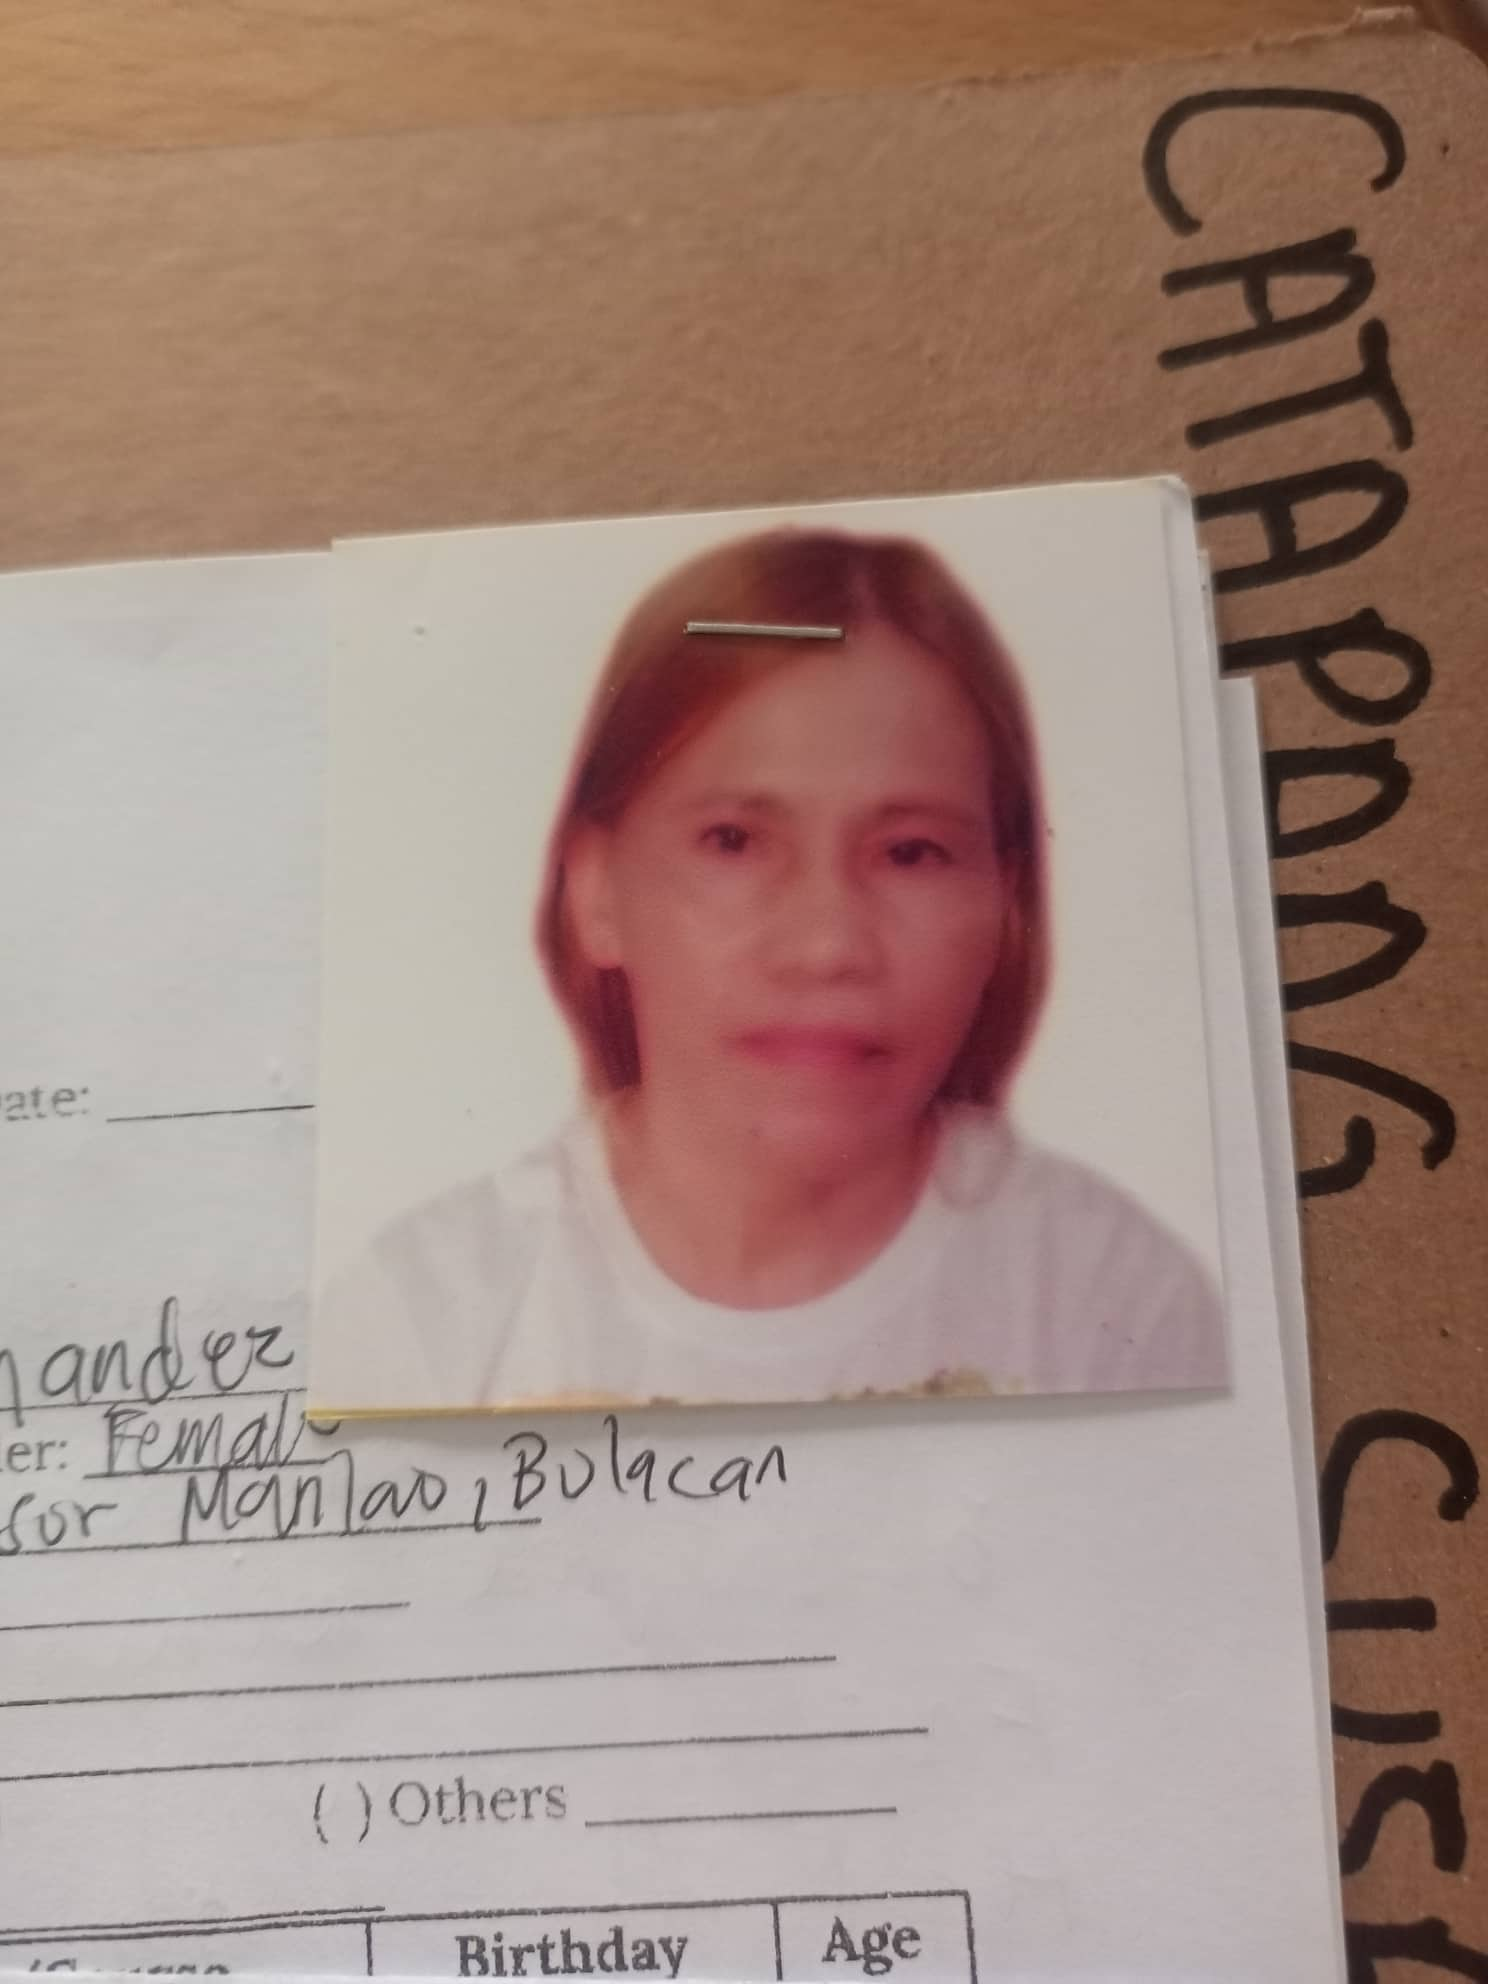 CATAPANG
ate:
nandez
er: Female
sor Manlao, Bulacan
( ) Others
Birthday
Age